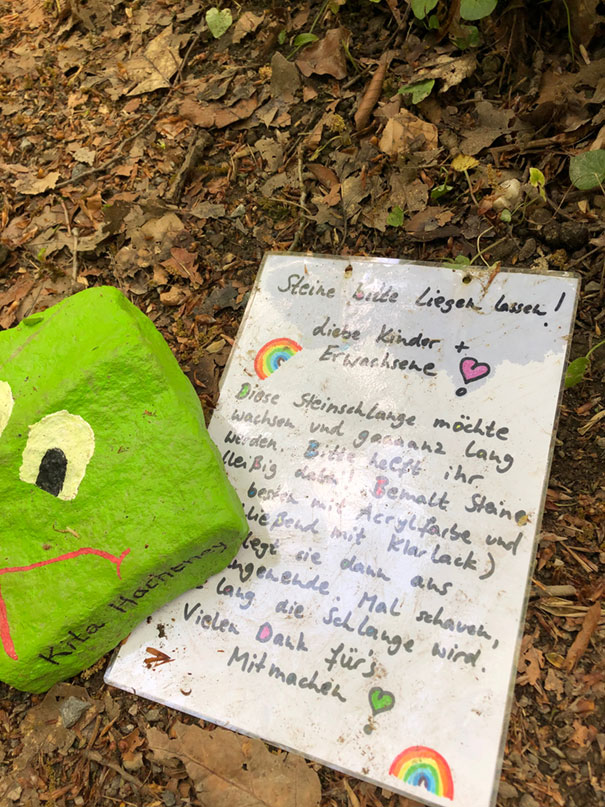 Steine bitte liegen lassen!
Liebe Kinder +
Erwachsene
Diese Steinschlange möchte
wachsen und gaaaanz lang
werden. Bitte helft ihr
fleißig dabei. Bemalt Steine
besten mit Acrylfarbe und
ließend mit Klarlack)
legt sie dann ans
angenende. Mal schauen,
lang die Schlange wird.
Vielen Dank für's
Mitmachen
Kita Hacheney